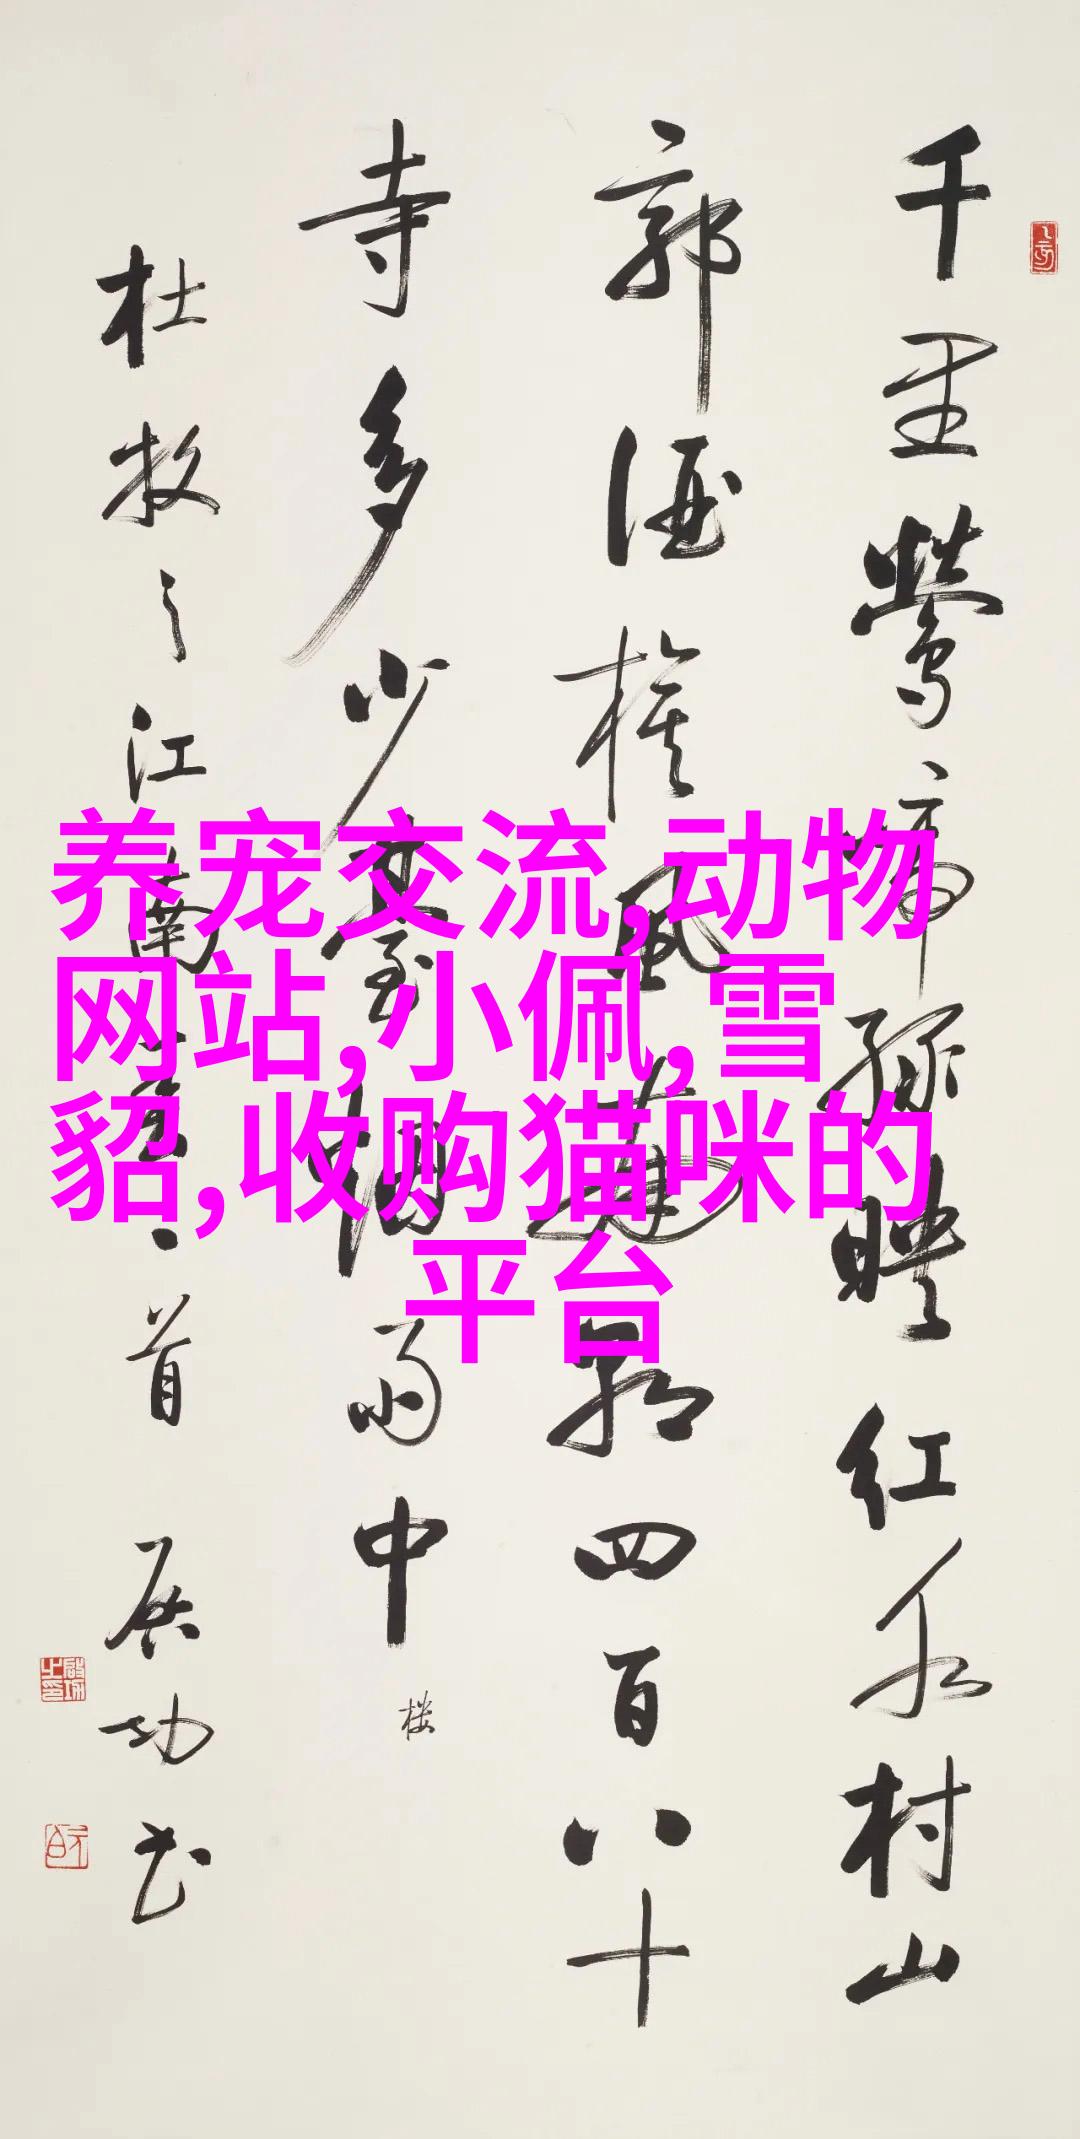 千里鶯啼綠映紅水村山
郭酒旗風朝四百八十
寺多少臺烟雨中
楼
杜牧之江南春一首 启功书
养宠交流,动物
网站,小佩,雪
貂,收购猫咪的
平台